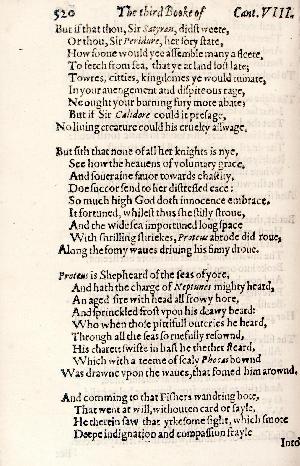 520 The third Booke of Cant. VIII.
But if that thou, Sir Satyran, didst weete,
Or thou, Sir Peridure, her sory state,
How soone would yee assemble many a fleete,
To fetch from sea, that ye at land lost late;
Towres, citties, kingdomes ye would ruinate,
In your auengement and dispiteous rage,
Ne ought your burning fury mote abate;
But if Sir Calidore could it presage,
No liuing creature could his cruelty asswage.
But sith that none of all her knights is nye,
See how the heauens of voluntary grace,
And soueraine fauor towards chastity,
Doe succor send to her distressed cace:
So much high God doth innocence embrace.
It fortuned, whilest thus she stifly stroue,
And the wide sea importuned long space
With shrilling shriekes, Proteus abrode did roue,
Along the fomy waues driuing his finny droue.
Proteus is Shepheard of the seas of yore,
And hath the charge of Neptunes mighty heard,
An aged sire with head all frowy hore,
And sprinckled frost vpon his deawy beard:
Who when those pittifull outcries he heard,
Through all the seas so ruefully resownd,
His charett swifte in hast he thether steard,
Which with a teeme of scaly Phocas bownd
Was drawne vpon the waues, that fomed him arownd.
And comming to that Fishers wandring bote,
That went at will, withouten card or sayle,
He therein saw that yrkesome sight, which smote
Deepe indignation and compassion frayle
Into